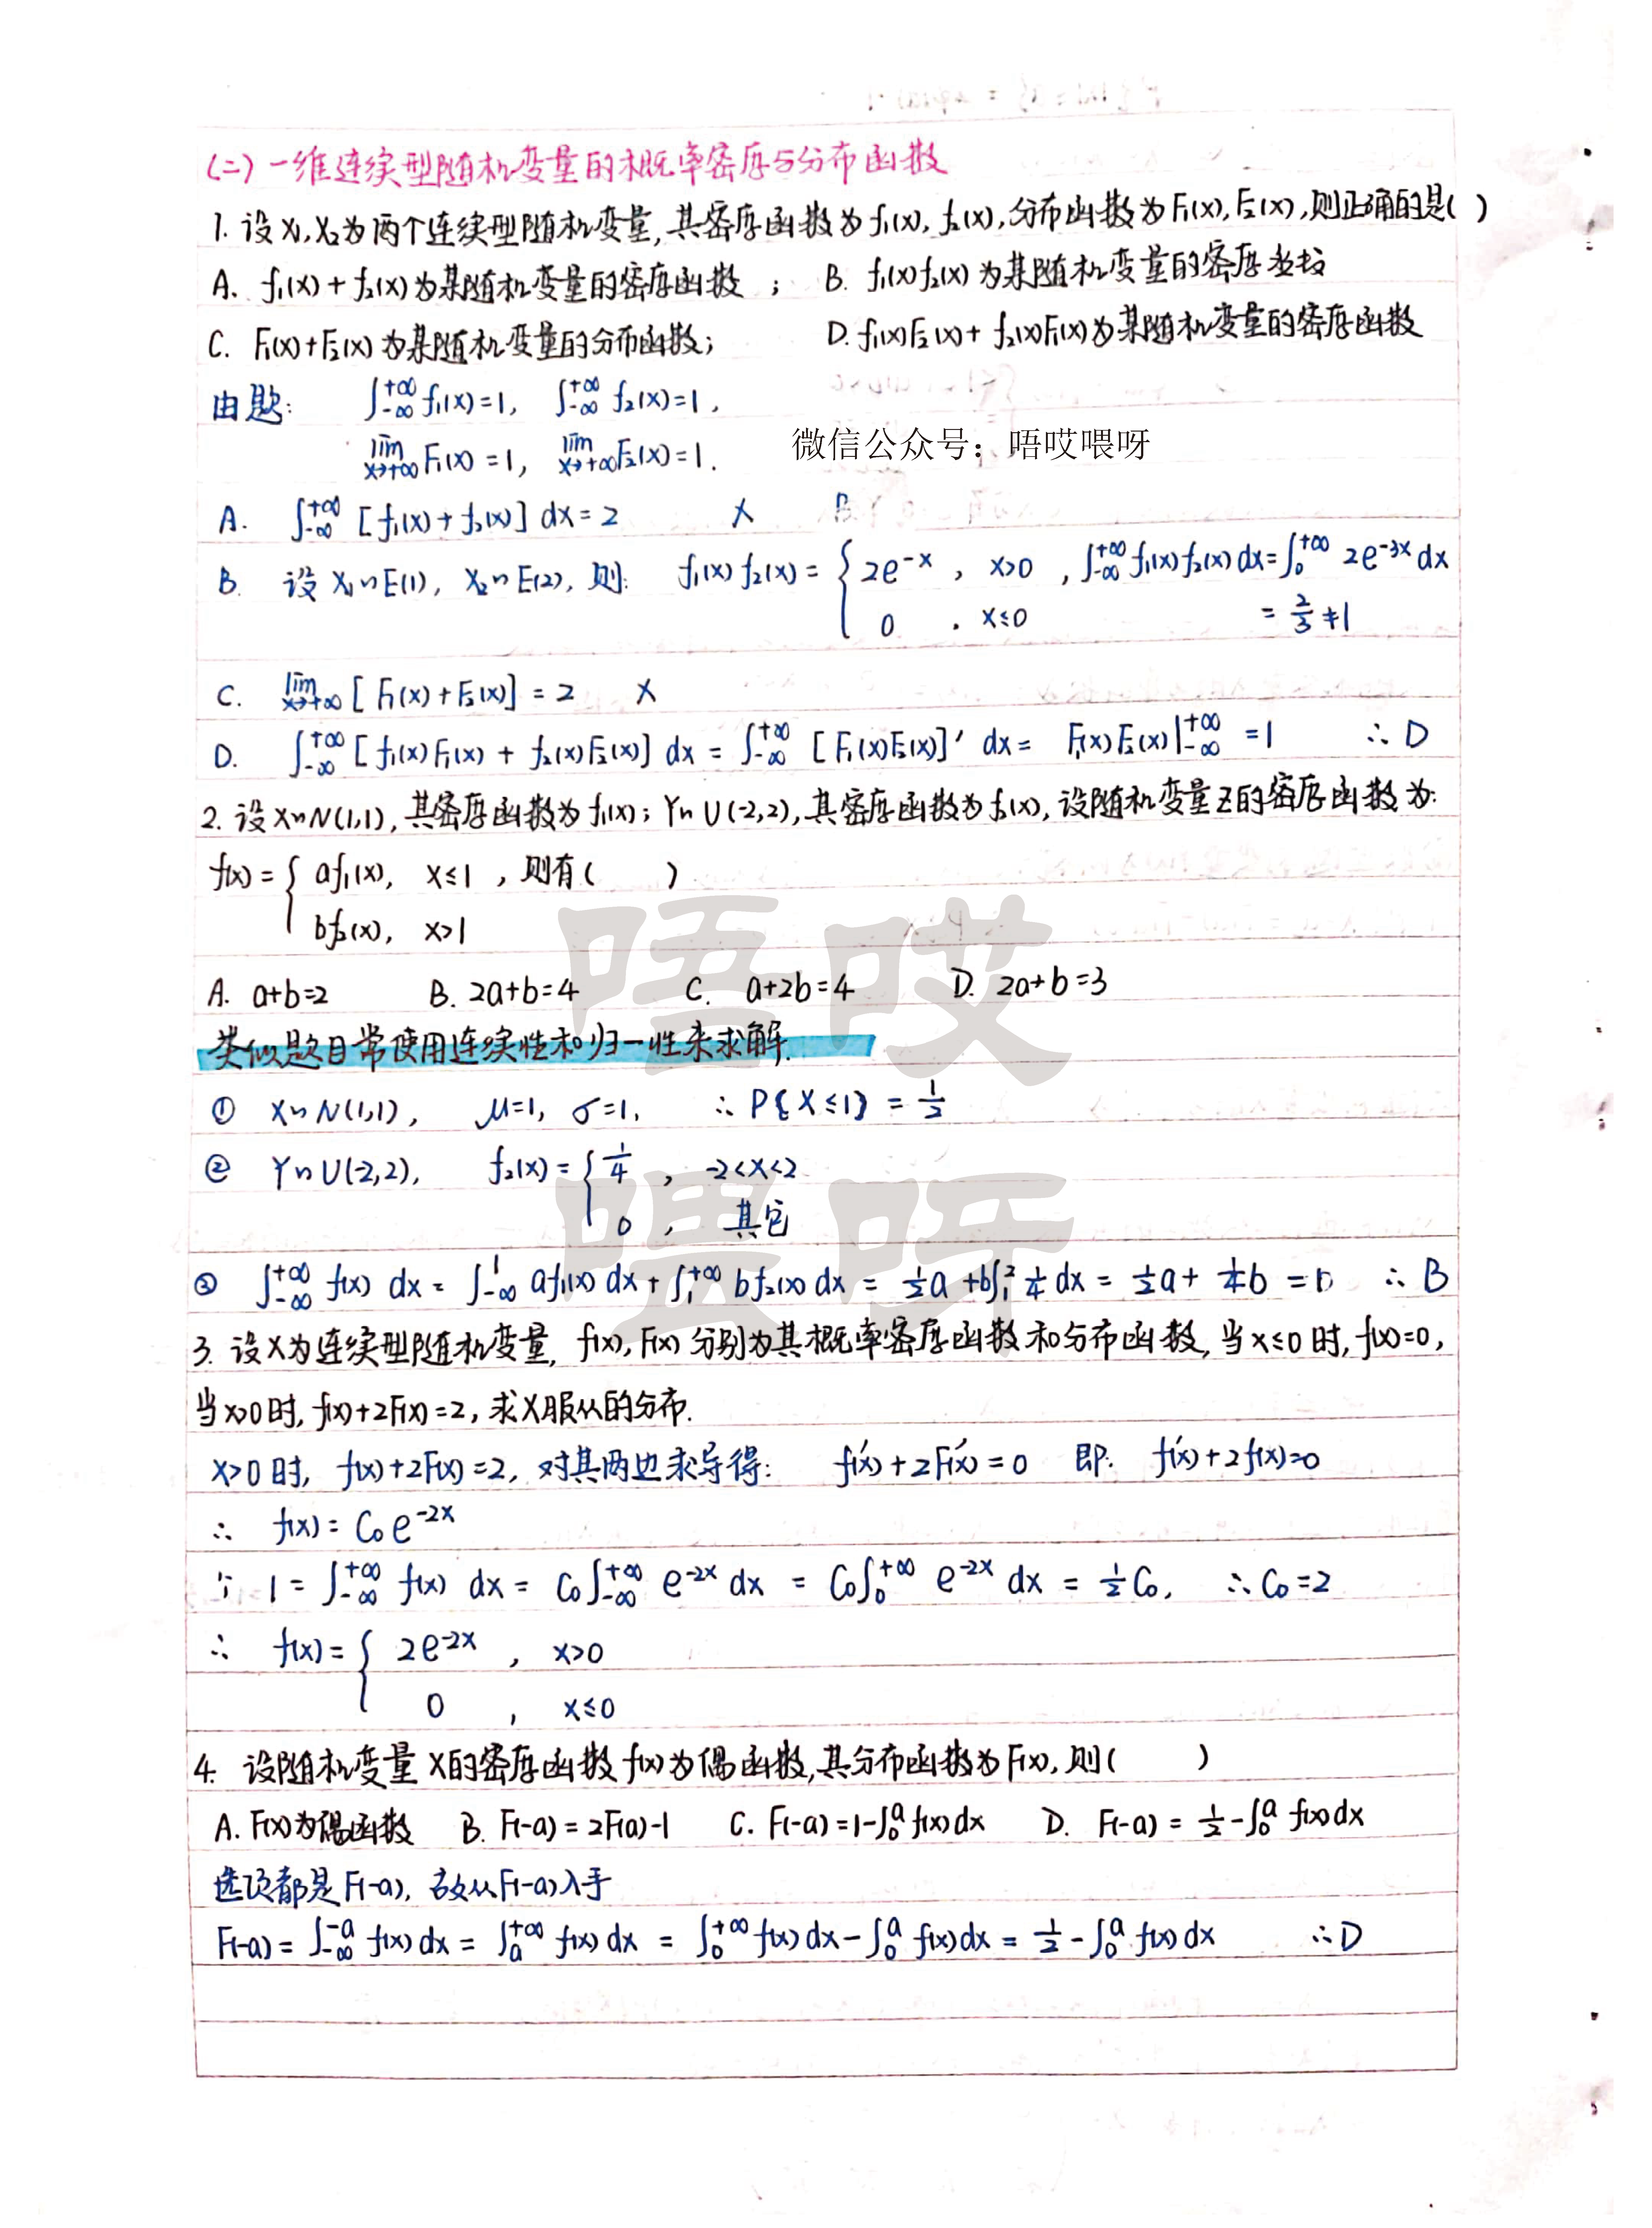 (二)一维连续型随机变量的概率密度与分布函数
1. 设X₁,X₂为两个连续型随机变量,其密度函数为f₁(x), f₂(x),分布函数为F₁(x),F₂(x),则正确的是( )
A. f₁(x)+f₂(x)为某随机变量的密度函数 ; B. f₁(x)f₂(x)为某随机变量的密度
C. F₁(x)+F₂(x)为某随机变量的分布函数; D. f₁(x)F₂(x)+f₂(x)F₁(x)为某随机变量的密度函数
由题: ∫₋∞^{+∞} f₁(x)=1, ∫₋∞^{+∞} f₂(x)=1,
lim_{x→+∞} F₁(x)=1, lim_{x→+∞} F₂(x)=1.
微信公众号：唔哎喂呀
A. ∫₋∞^{+∞} [f₁(x)+f₂(x)] dx=2 ×
B. 设 X₁~E(1), X₂~E(2), 则: f₁(x)f₂(x)= { 2e^{-x}, x>0 , ∫₋∞^{+∞} f₁(x)f₂(x)dx=∫₀^{+∞} 2e^{-3x}dx
0 , x≤0 = 2/3 ≠1
C. lim_{x→+∞} [F₁(x)+F₂(x)] = 2 ×
D. ∫₋∞^{+∞} [f₁(x)F₁(x) + f₂(x)F₂(x)] dx = ∫₋∞^{+∞} [F₁(x)F₂(x)]′ dx = F₁(x)F₂(x)|₋∞^{+∞} =1 ∴D
2. 设X~N(1,1),其密度函数为f₁(x); Y~U(-2,2),其密度函数为f₂(x),设随机变量Z的密度函数为:
f(x)= { af₁(x), x≤1 ,则有( )
bf₂(x), x>1
A. a+b=2 B. 2a+b=4 C. a+2b=4 D. 2a+b=3
类似题目常使用连续性和归一性来求解.
① X~N(1,1), μ=1, σ=1, ∴ P{X≤1} = 1/2
② Y~U(-2,2), f₂(x)= { 1/4 , -2<x<2
0 , 其它
③ ∫₋∞^{+∞} f(x) dx = ∫₋∞^{1} af₁(x) dx + ∫₁^{+∞} bf₂(x) dx = 1/2 a + b∫₁² 1/4 dx = 1/2 a + 1/4 b = 1 ∴ B
3. 设X为连续型随机变量, f(x), F(x) 分别为其概率密度函数和分布函数, 当x≤0时, f(x)=0,
当x>0时, f(x)+2F(x)=2, 求X服从的分布.
x>0时, f(x)+2F(x)=2, 对其两边求导得: f′(x)+2F′(x)=0 即: f′(x)+2f(x)=0
∴ f(x)= C₀e^{-2x}
∵ 1=∫₋∞^{+∞} f(x) dx = C₀∫₋∞^{+∞} e^{-2x} dx = C₀∫₀^{+∞} e^{-2x} dx = 1/2 C₀, ∴C₀=2
∴ f(x)= { 2e^{-2x} , x>0
0 , x≤0
4. 设随机变量X的密度函数f(x)为偶函数,其分布函数为F(x),则( )
A. F(x)为偶函数 B. F(-a)=2F(a)-1 C. F(-a)=1-∫₀^a f(x)dx D. F(-a)= 1/2 -∫₀^a f(x)dx
选项都是F(-a), 故从F(-a)入手
F(-a)=∫₋∞^{-a} f(x)dx = ∫_a^{+∞} f(x)dx = ∫₀^{+∞} f(x)dx-∫₀^a f(x)dx = 1/2 -∫₀^a f(x)dx ∴D
唔哎
喂呀